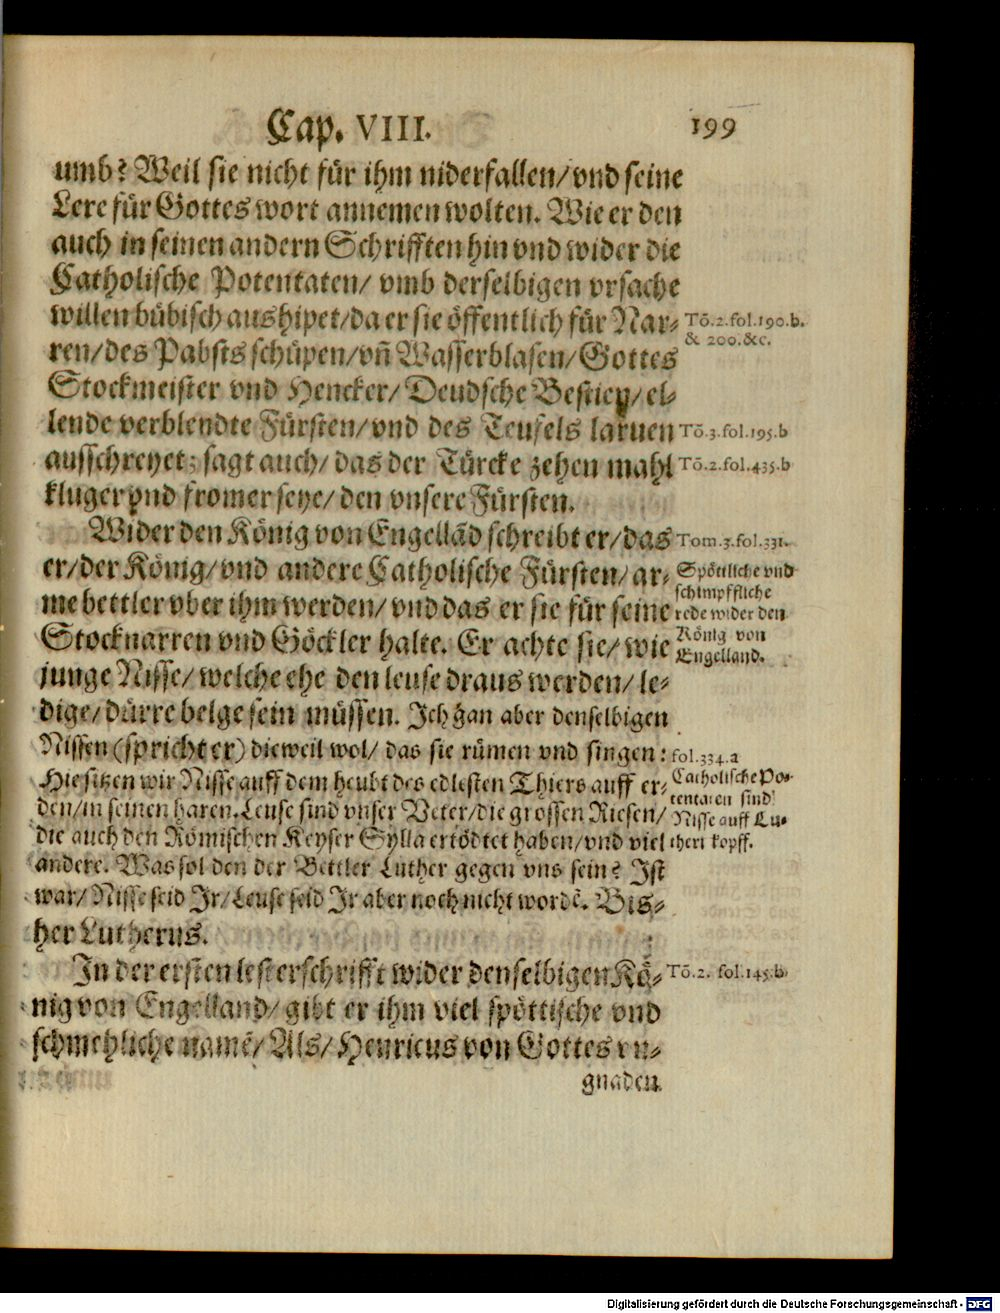 Cap. VIII. 199
umb? Weil sie nicht für ihm niderfallen/vnd seine
Lere für Gottes wort annemen wolten. Wie er den
auch in seinen andern Schrifften hin vnd wider die
Catholische Potentaten/ vmb derselbigen vrsache
willen bübisch aushipet/da er sie öffentlich für Nar-
Tō.2.fol.190.b.
& 200.&c.
ren/des Pabsts schüpen/vn̄ Wasserblasen/Gottes
Stockmeister vnd Hencker/Deudsche Bestien/el-
lende verblendte Fürsten/vnd des Teufels laruen
Tō.3.fol.195.b
ausschreyet: sagt auch/ das der Türcke zehen mahl
Tō.2.fol.435.b
kluger vnd fromer seye/den vnsere Fürsten.
Wider den König von Engellād schreibt er/das
Tom.3.fol.331.
er/der König/vnd andere Catholische Fürsten/ar-
me bettler vber ihm werden/vnd das er sie für seine
Stocknarren vnd Göckler halte. Er achte sie/wie
Spöttliche vnd
schimpffliche
rede wider den
König von
Engelland.
junge Nisse/welche ehe den leuse draus werden/le-
dige/dürre belge sein müssen. Ich gan aber denselbigen
Nissen (spricht er) dieweil wol/ das sie rümen vnd singen:
fol.334.a
Hie sitzen wir Nisse auff dem heubt des edlesten Thiers auff er-
den/in seinen haren. Leuse sind vnser Veter/die grossen Riesen/
die auch den Römischen Keyser Sylla ertödtet haben/vnd viel
Catholische Po-
tentaten sind
Nisse auff Lu-
theri kopff.
andere. Was sol den der Bettler Luther gegen vns sein? Ist
war/Nisse seid Ir/Leuse seid Ir aber noch nicht wordē. Bis-
her Lutherus.
In der ersten lesterschrifft wider denselbigen Kö-
Tō.2. fol.145.b
nig von Engelland/ gibt er ihm viel spöttische vnd
schmehliche namē/Als/Henricus von Gottes vn-
gnaden.
Digitalisierung gefördert durch die Deutsche Forschungsgemeinschaft - DFG